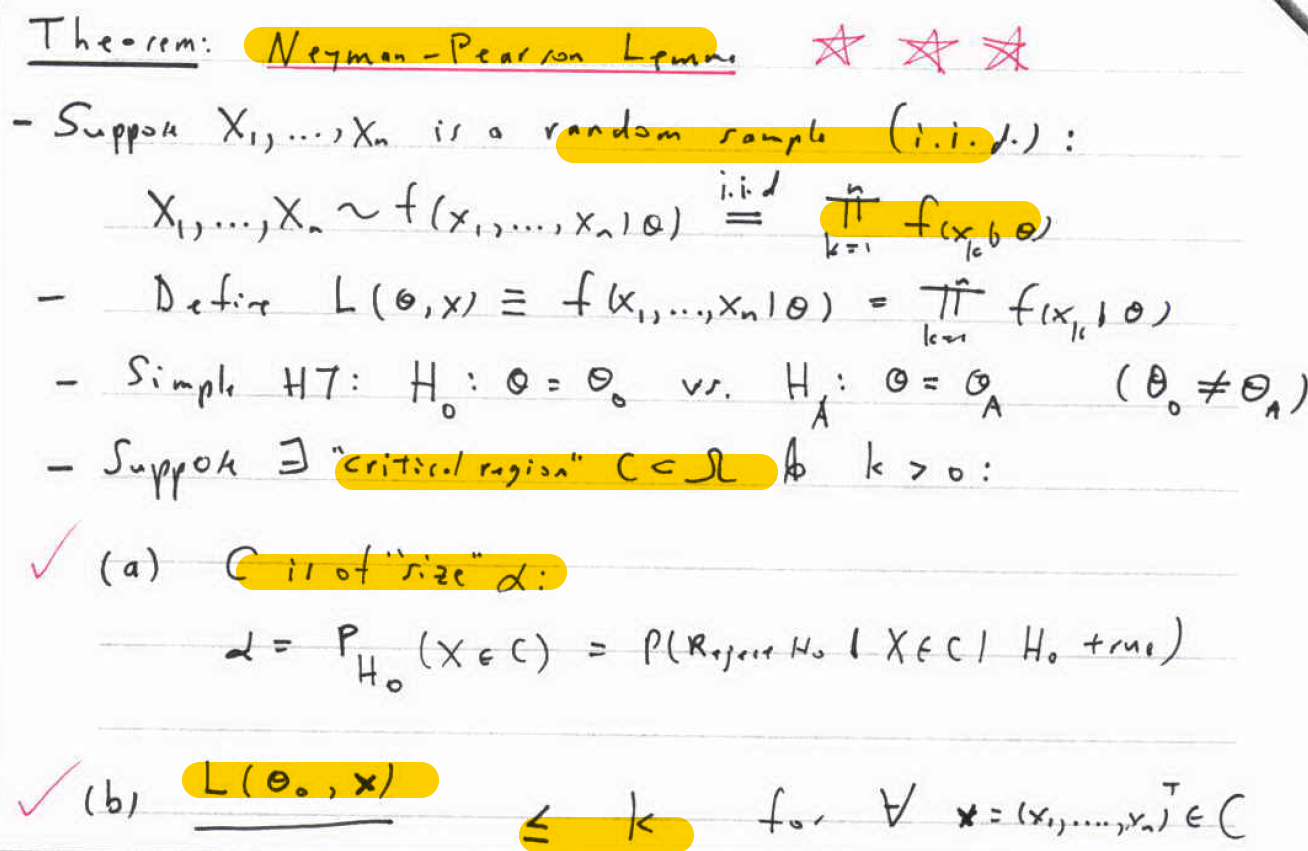 Theorem: Neyman-Pearson Lemma
- Suppose X₁,...,Xₙ is a random sample (i.i.d.):
X₁,...,Xₙ ~ f(x₁,...,xₙ|θ) i.i.d = ∏ₖ₌₁ⁿ f(xₖ|θ)
- Define L(θ,x) ≡ f(x₁,...,xₙ|θ) = ∏ₖ₌₁ⁿ f(xₖ|θ)
- Simple HT: H₀: θ = θ₀ vs. H_A: θ = θ_A (θ₀ ≠ θ_A)
- Suppose ∃ "critical region" C ⊂ Ω & k > 0:
✓ (a) C is of "size" α:
α = P_H₀ (X ∈ C) = P(Reject H₀ | X ∈ C | H₀ true)
✓ (b) L(θ₀, x) ≤ k for ∀ x = (x₁,....,xₙ)ᵀ ∈ C